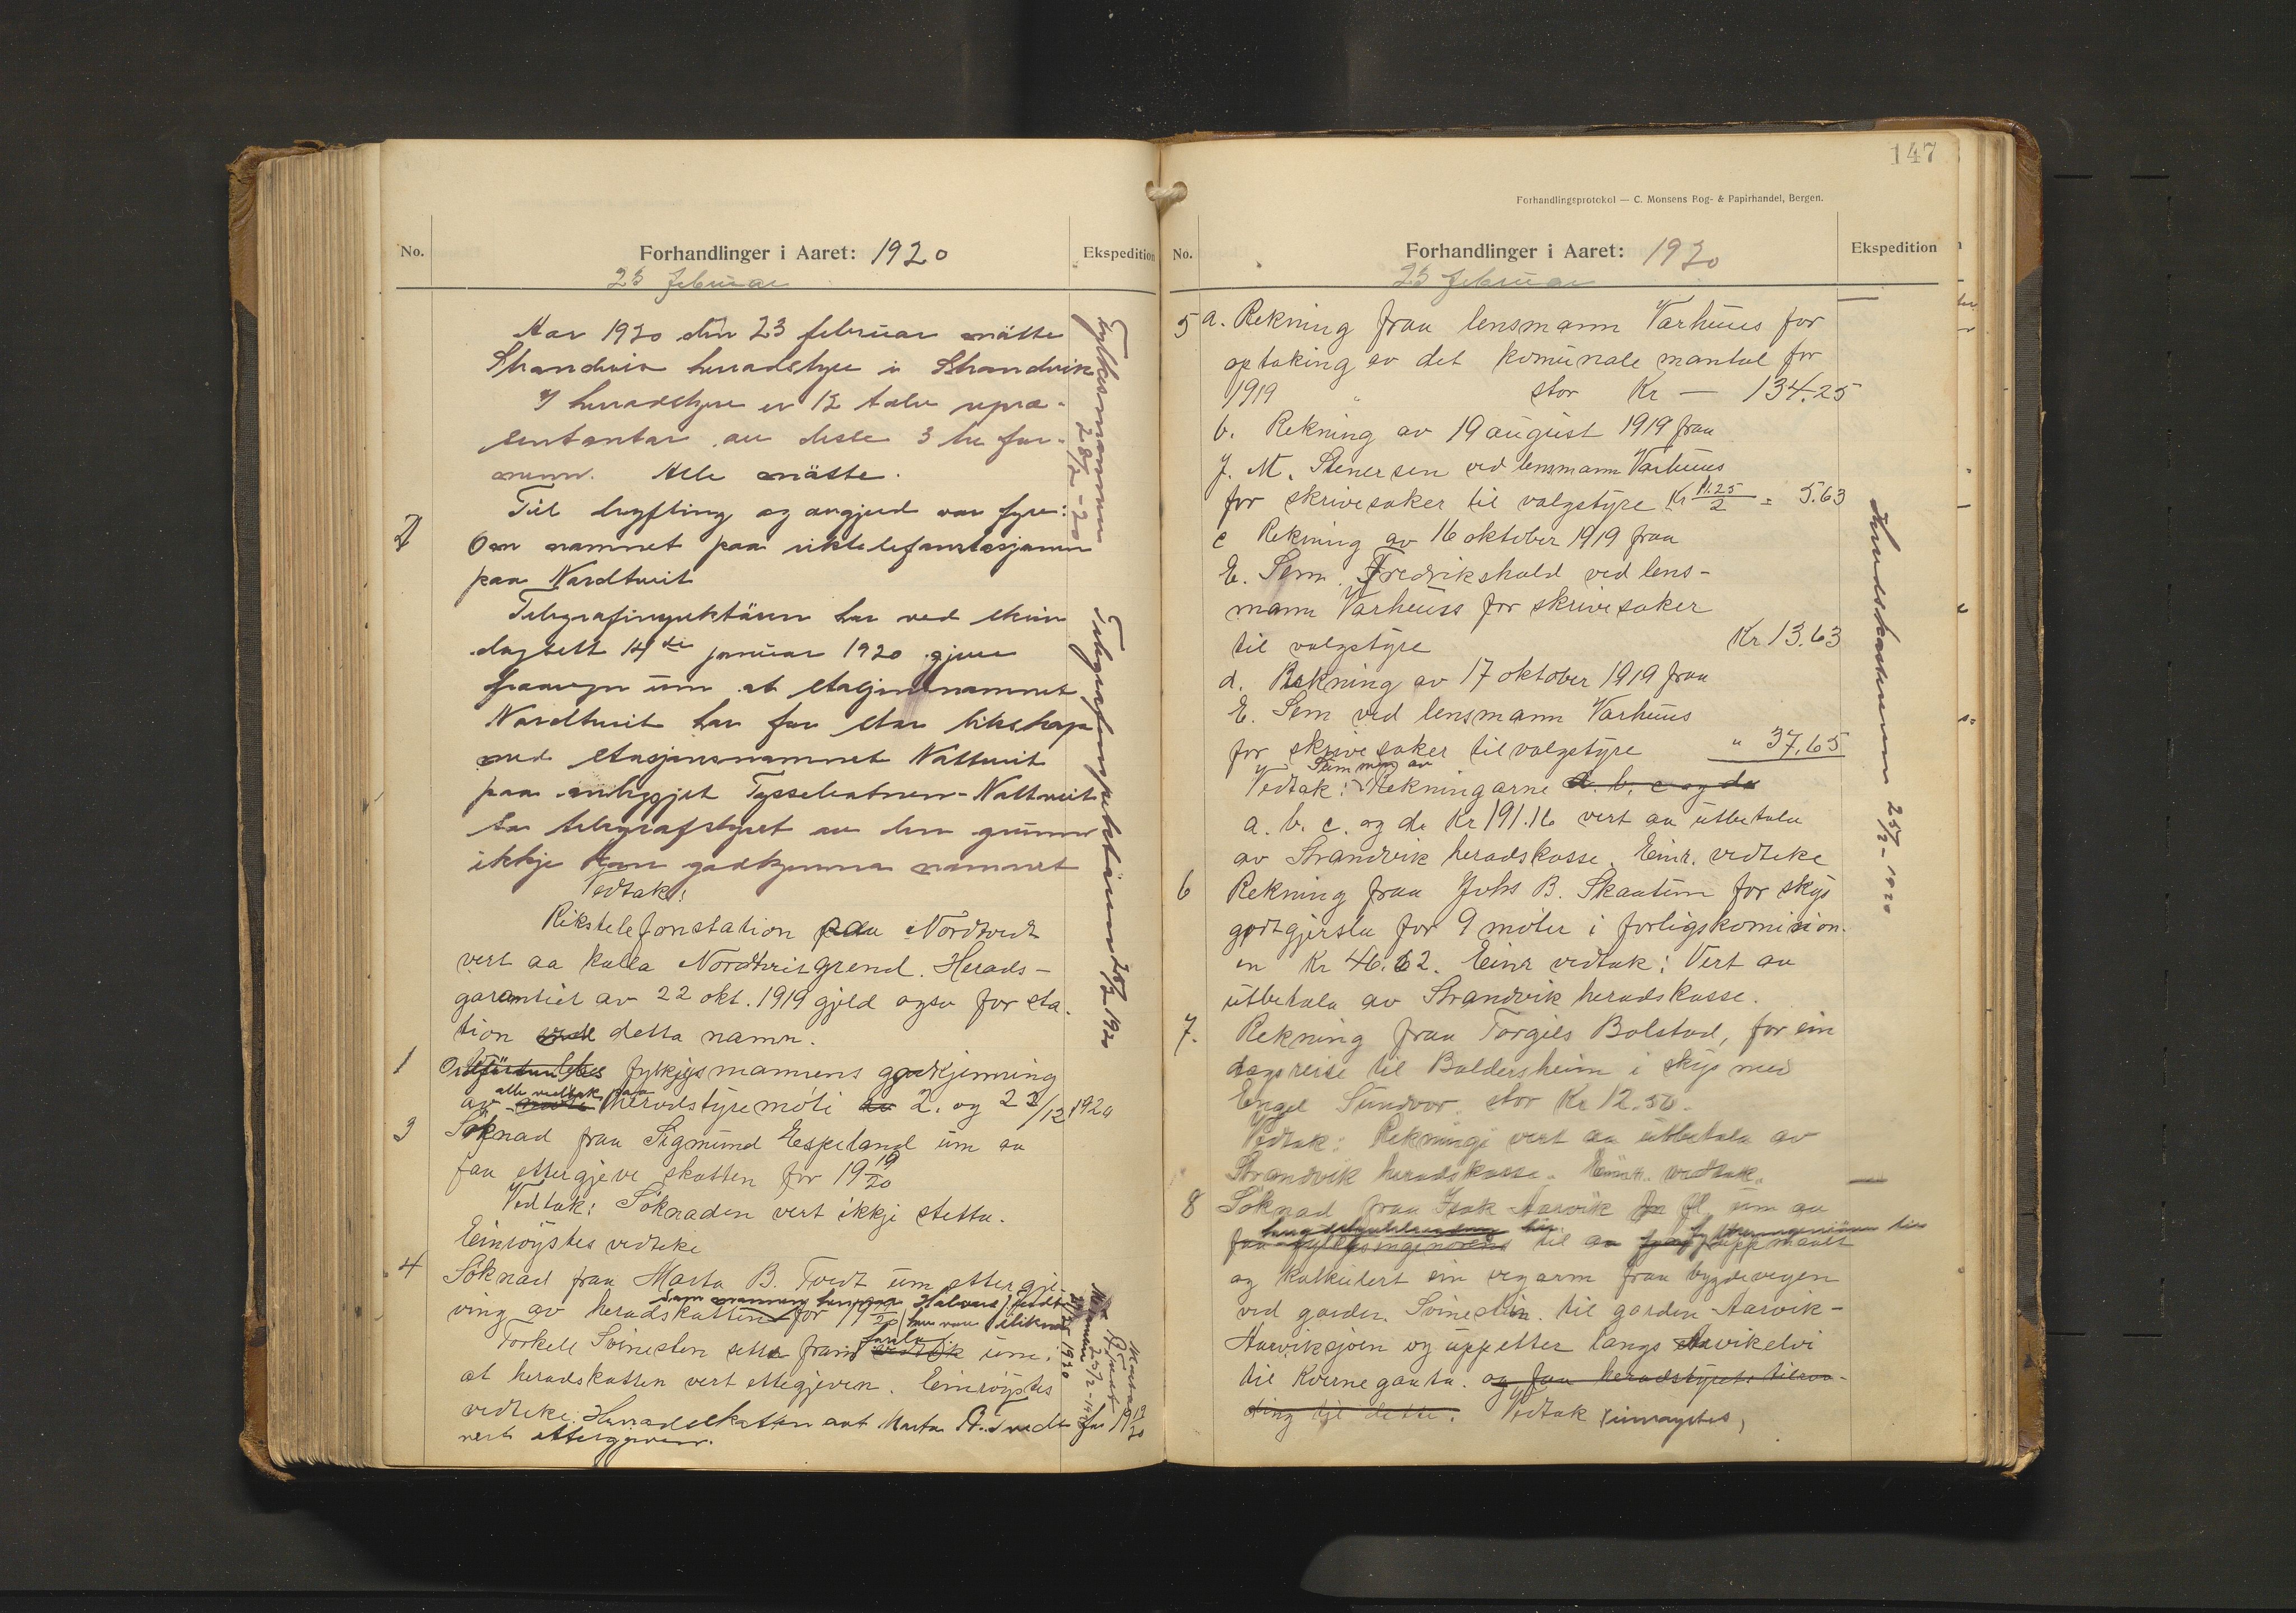 No.
Forhandlinger i Aaret: 1920
Ekspedition
23 februar
Aar 1920 den 23 februar mätte
Strandvik heradstyre i Strandvik
I heradstyre er 12 tolv repræ-
sentantar av desse 3 tre for-
menn. Alle mätte.
Til drøfting og avgjerd var fyre:
2 Om namnet paa rikstelefonstasjonen
paa Nordtveit
Telegrafinspektören har ved skriv
dagsett 14de januar 1920 gjeve
fraasegn um at stasjonsnamnet
Nordtveit har for stor likskap
med stasjonsnamnet Nattveit
paa anlegget Tysse - Nattveit
so telegrafstyret av den grunn
ikkje kan godkjenna namnet
Vedtak:
Rikstelefonstation paa Nordtvedt
vert aa kalla Nordtveitgrend. Herads-
garantiet av 22 okt. 1919 gjeld ogso for sta-
tion detta namn.
1 fylkesmannens godkjenning
av alle vedtak paa heradstyremöti 2. og 22/12 1920
3 Söknad fraa Sigmund Espeland um aa
faa ettergjeve skatten for 19 19/20
Vedtak: Söknaden vert ikkji stetta.
Einröystes vedteke
4 Söknad fraa Marta B. Tvedt um ettergje-
ving av heradskatten for 19 19/20
Torkell Svinesten sette fram um
at heradskatten vert ettegjeven. Einröystes
vedteke. Herradskatten aat Marta B. Tvedt for 19 19/20
vert ettergjeven.
Fylkesmannen 28/2 - 20
Telegrafinspektören 28/2 1920
147
Forhandlingsprotokol — C. Monsens Bog- & Papirhandel, Bergen.
No.
Forhandlinger i Aaret: 1920
Ekspedition
23 februar
5 a. Rekning fraa lensmann Varhuus for
optaking av det komunale mantal for
1919 stor Kr — 134.25
b. Rekning av 19 august 1919 fraa
J. M. Stenersen ved lensmann Varhuus
for skrivesaker til valgstyre Kr 11.25/2 = 5.63
c Rekning av 16 oktober 1919 fraa
E. Sem. Fredrikshald ved lens-
mann Varhuus for skrivesaker
til valgstyre Kr 13.63
d. Rekning av 17 oktober 1919 fraa
E. Sem ved lensmann Varhuus
for skrivesaker til valgstyre " 37.65
Vedtak: Summen av Rekningarne a. b. c og d
a. b. c. og d. Kr 191.16 vert aa utbetala
av Strandvik heradskasse. Einr. vedteke
6 Rekning fraa Johs B. Skaatun for skys
godtgjersla for 9 möter i forligskomision-
en Kr 46.62. Einr vedtak: Vert aa
utbetala av Strandvik heradskasse.
7. Rekning fraa Torgils Bolstad, for ein
dagsreise til Baldersheim i skys med
Engel Sundvor. stor Kr 12.50.
Vedtak: Rekningi vert aa utbetala av
Strandvik heradskasse. Einr. vedtak.
8 Söknad fraa Isak Aarvik fl um aa
faa fylkesingeniörens til aa uppmaalt
og kalkulert ein vegarm fraa bygdevegen
ved garden Svinesten til garden Aarvik -
Aarviksjöen og uppetter langs Aarvikelvi
til Kvernegauta. og faa heradstyrets tilraa-
ding til dette. Vedtak einrøystes,
Heradskasseraren 25/2 - 1920